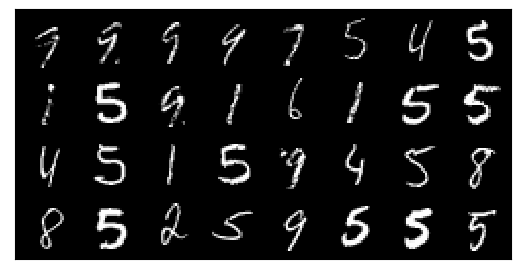 7 9 9 9 7 5 4 5
1 5 9 1 6 1 5 5
4 5 1 5 9 4 5 8
8 5 2 5 9 5 5 5